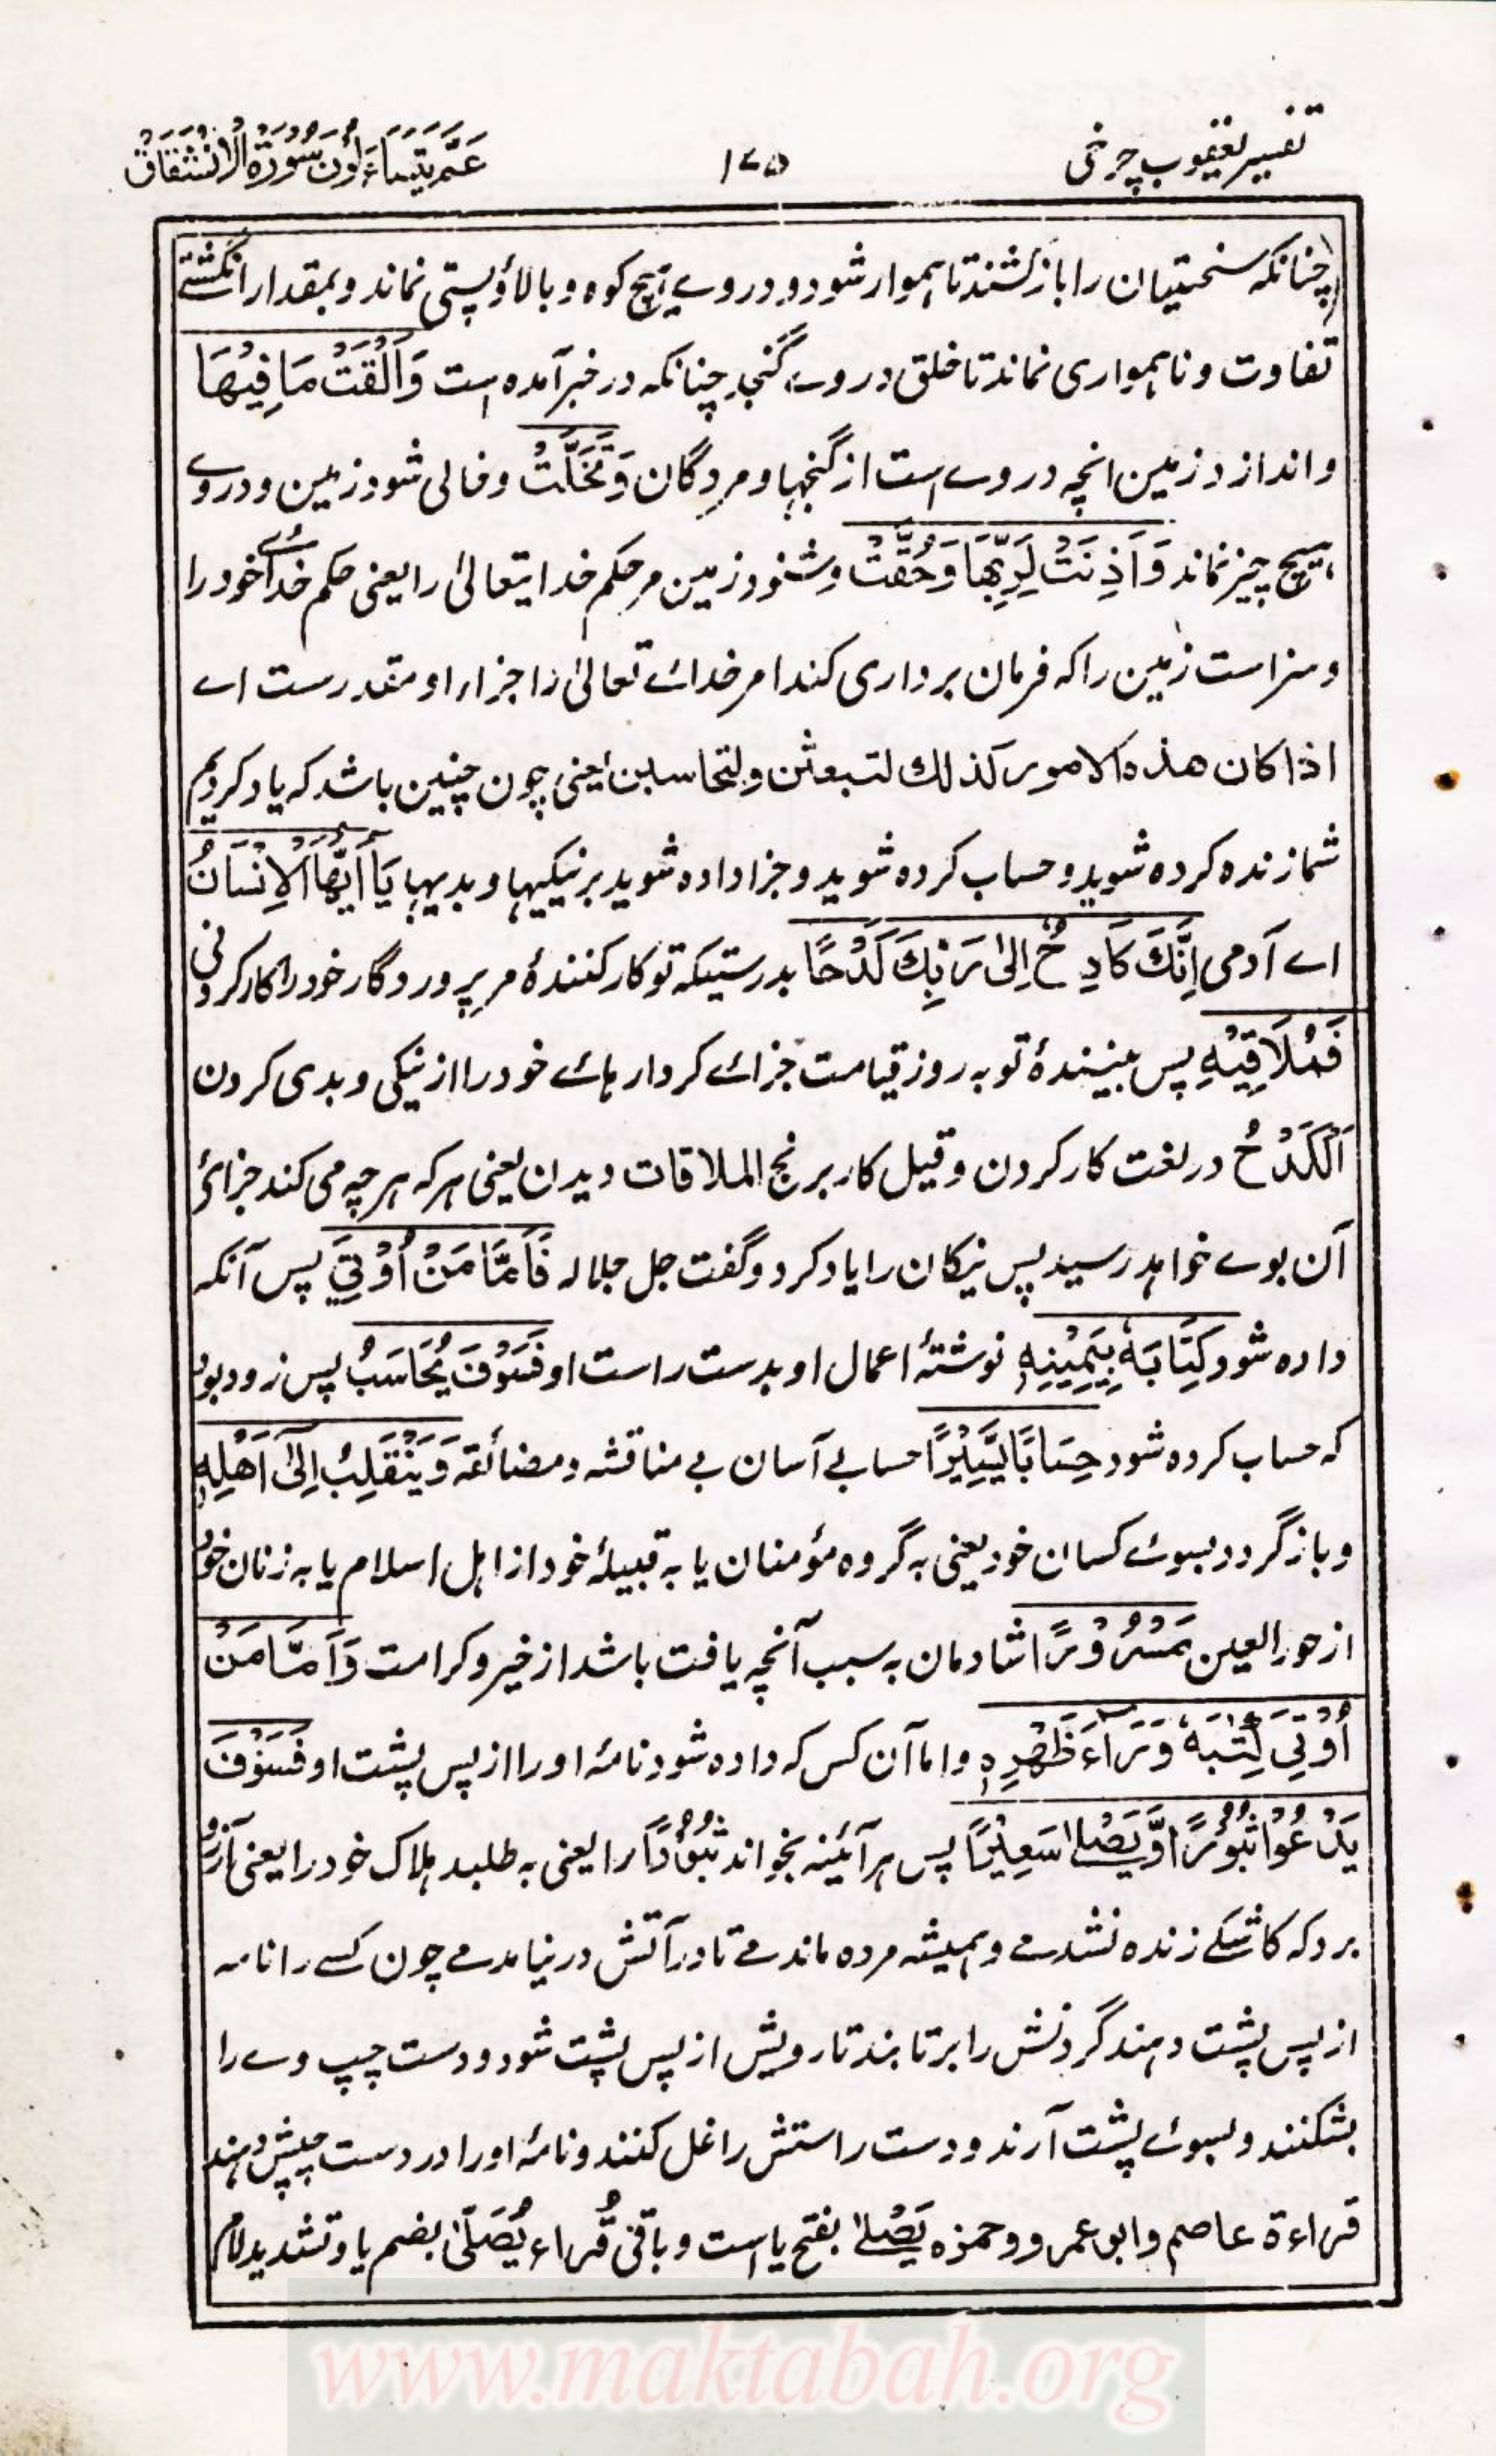 تفسیر یعقوب چرخی
۱۷۵
عَمَّ يَتَسَاءَلُونَ سُوْرَةُ الْاِنْشِقَاقْ
چنانکه سختیان را باز کشند تا هموار شود و در وے هیچ کوه و بالا و پستی نماند و بمقدار انگشتے
تفاوت و ناهمواری نماند تا خلق در وے گنجد چنانکه در خبر آمده است وَاَلْقَتْ مَا فِيْهَا
و اندازد زمین انچه در وے است از گنجها و مردگان وَتَخَلَّتْ و خالی شود زمین و در وے
هیچ چیز نماند وَاَذِنَتْ لِرَبِّهَا وَحُقَّتْ و شنود زمین مر حکم خدایتعالیٰ را یعنی حکم خدائے خود را
و سزا است زمین را که فرمان برداری کند امر خدائے تعالیٰ را جزاء او مقدرست اے
اذا کان هذه الامور کذلك لتبعثن ولتحاسبن یعنی چون چنین باشد که یاد کردیم
شما زنده کرده شوید و حساب کرده شوید و جزا داده شوید بر نیکیها و بدیها يَا اَيُّهَا الْاِنْسَانُ
اے آدمی اِنَّكَ كَادِحٌ اِلىٰ رَبِّكَ كَدْحًا بدرستیکه تو کار کنندۂ مر پروردگار خود را کار کردنی
فَمُلَاقِيْهِ پس بینندۂ تو به روز قیامت جزائے کردارهائے خود را از نیکی و بدی کردن
اَلْكَدْحُ در لغت کار کردن و قیل کار برنج الملاقات دیدن یعنی هر که هر چه می کند جزائے
آن بوے خواهد رسید پس نیکان را یاد کرد و گفت جل جلاله فَاَمَّا مَنْ اُوْتِيَ پس آنکه
داده شود كِتَابَهٗ بِيَمِيْنِهٖ نوشتۂ اعمال او بدست راست او فَسَوْفَ يُحَاسَبُ پس زود بود
که حساب کرده شود حِسَابًا يَّسِيْرًا حسابے آسان بے مناقشه و مضائقه وَيَنْقَلِبُ اِلىٰٓ اَهْلِهٖ
و باز گردد بسوئے کسان خود یعنی به گروه مؤمنان یا به قبیلۂ خود از اهل اسلام یا به زنان خود
از حور العین مَسْرُوْرًا شادمان به سبب آنچه یافت باشد از خیر و کرامت وَاَمَّا مَنْ
اُوْتِيَ كِتٰبَهٗ وَرَآءَ ظَهْرِهٖ و اما آن کس که داده شود نامۂ او را از پس پشت او فَسَوْفَ
يَدْعُوْا ثُبُوْرًا وَّيَصْلىٰ سَعِيْرًا پس هر آئینه بخواند ثُبُوْرًا را یعنی به طلبد هلاک خود را یعنی آرزو
برد که کاشکے زنده نشدے و همیشه مرده ماندے تا در آتش در نیامدے چون کسے را نامه
از پس پشت دهند گردنش را برتابند تا رویش از پس پشت شود و دست چپ وے را
بشکنند و بسوئے پشت آرند و دست راستش را غل کنند و نامۂ او را در دست چپش دهند
قراءة عاصم و ابو عمرو و حمزه يَصْلىٰ بفتح یا است و باقی قُراء يُصَلّىٰ بضم یا و تشدید لام
www.maktabah.org